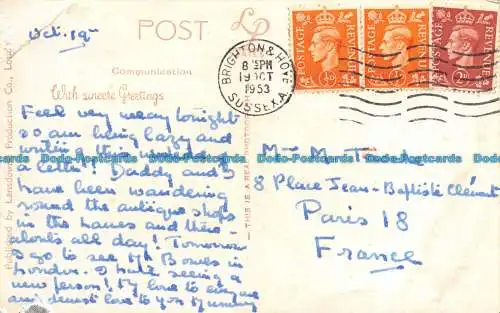 Oct. 19th
POST
LP
Communication
With sincere Greetings
Published by Lansdowne Production Co., London
THIS IS A REAL PHOTOGRAPH
BRIGHTON & HOVE
8 15 PM
19 OCT
1953
SUSSEX. A.
POSTAGE REVENUE
POSTAGE REVENUE
POSTAGE REVENUE
Feel very weary tonight
so am being lazy and
writing this instead of
a letter! Daddy and I
have been wandering
round the antique shops
in the lanes and there
abouts all day! Tomorrow
I go to see Mr Bowes in
London. I hate seeing a
new person! My love to everyone
and dearest love to you Mummy
8 Place Jean-Baptiste Clément
Paris 18
France
Dodo-Postcards Dodo-Postcards Dodo-Postcards